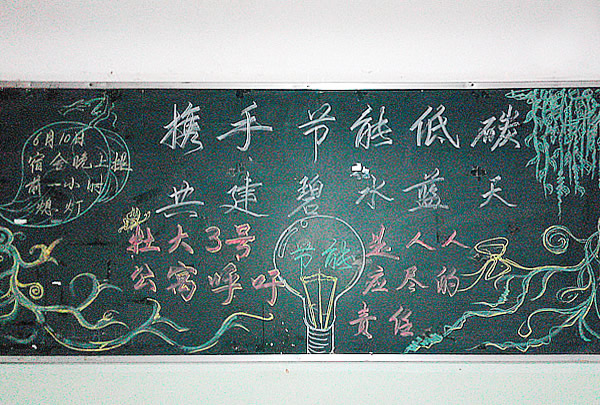 携手节能低碳
共建碧水蓝天
6月10日
宿舍晚上提
前一小时
熄灯
牡大3号
公寓呼吁
节能是人人
应尽的
责任